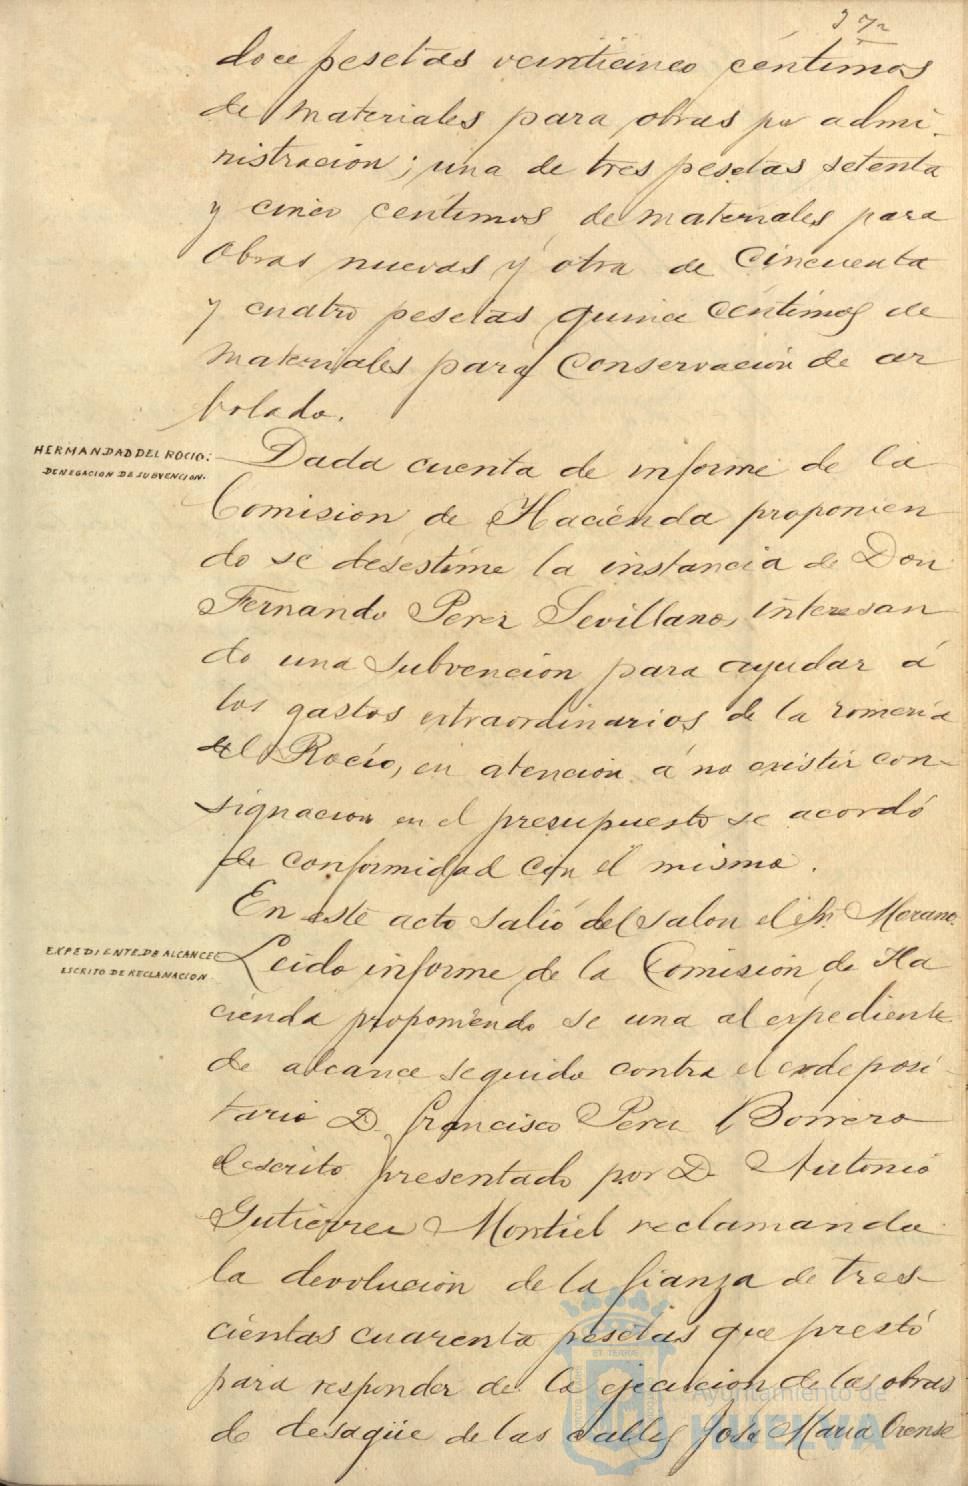 doce pesetas veinticinco céntimos
de materiales para obras por admi-
nistracion; una de tres pesetas setenta
y cinco centimos de materiales para
obras nuevas y otra de cincuenta
y cuatro pesetas quince céntimos de
materiales para conservacion de ar
bolado.
HERMANDAD DEL ROCIO:
DENEGACION DE SUBVENCION.
Dada cuenta de informe de la
Comision de Hacienda proponien
do se desestime la instancia de Don
Fernando Perez Sevillano, interesan
do una subvencion para ayudar á
los gastos extraordinarios de la romería
del Rocío, en atencion á no existir con-
signacion en el presupuesto se acordó
de conformidad con el mismo.
En este acto salió del salon el Sr. Morano.
EXPEDIENTE DE ALCANCE
ESCRITO DE RECLAMACION
Leido informe de la Comisión de Ha
cienda proponiendo se una al expediente
de alcance seguido contra el exdeposi-
tario D. Francisco Perez Borrero
el escrito presentado por D. Antonio
Gutierrez Montiel reclamando
la devolucion de la fianza de tres-
cientas cuarenta pesetas que prestó
para responder de la ejecucion de las obras
de desagüe de las calles José Maria Orense
Ayuntamiento de
HUELVA